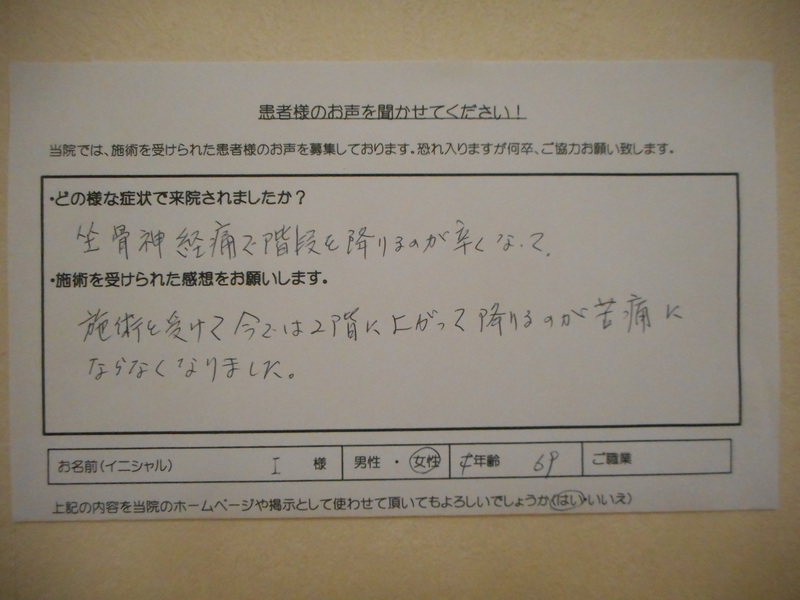 患者様のお声を聞かせてください！
当院では、施術を受けられた患者様のお声を募集しております。恐れ入りますが何卒、ご協力お願い致します。
・どの様な症状で来院されましたか？
坐骨神経痛で階段を降りるのが辛くなって。
・施術を受けられた感想をお願いします。
施術を受けて今では2階に上がって降りるのが苦痛に
ならなくなりました。
お名前(イニシャル) I 様 男性・女性 年齢 69 ご職業
上記の内容を当院のホームページや掲示として使わせて頂いてもよろしいでしょうか(はい・いいえ)